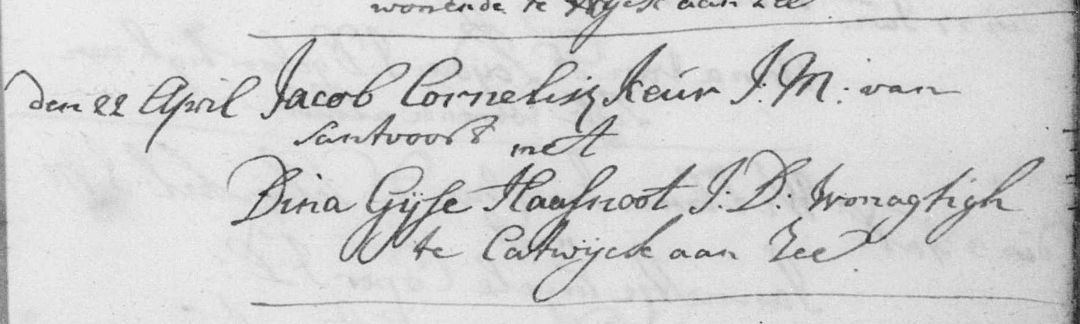 wonende te Wyck aan Zee
den 22 April Jacob Cornelisz Keur J. M. van
Santvoort met
Dina Gijse Haasnoot J. D. Wonagtigh
te Catwijck aan Zee